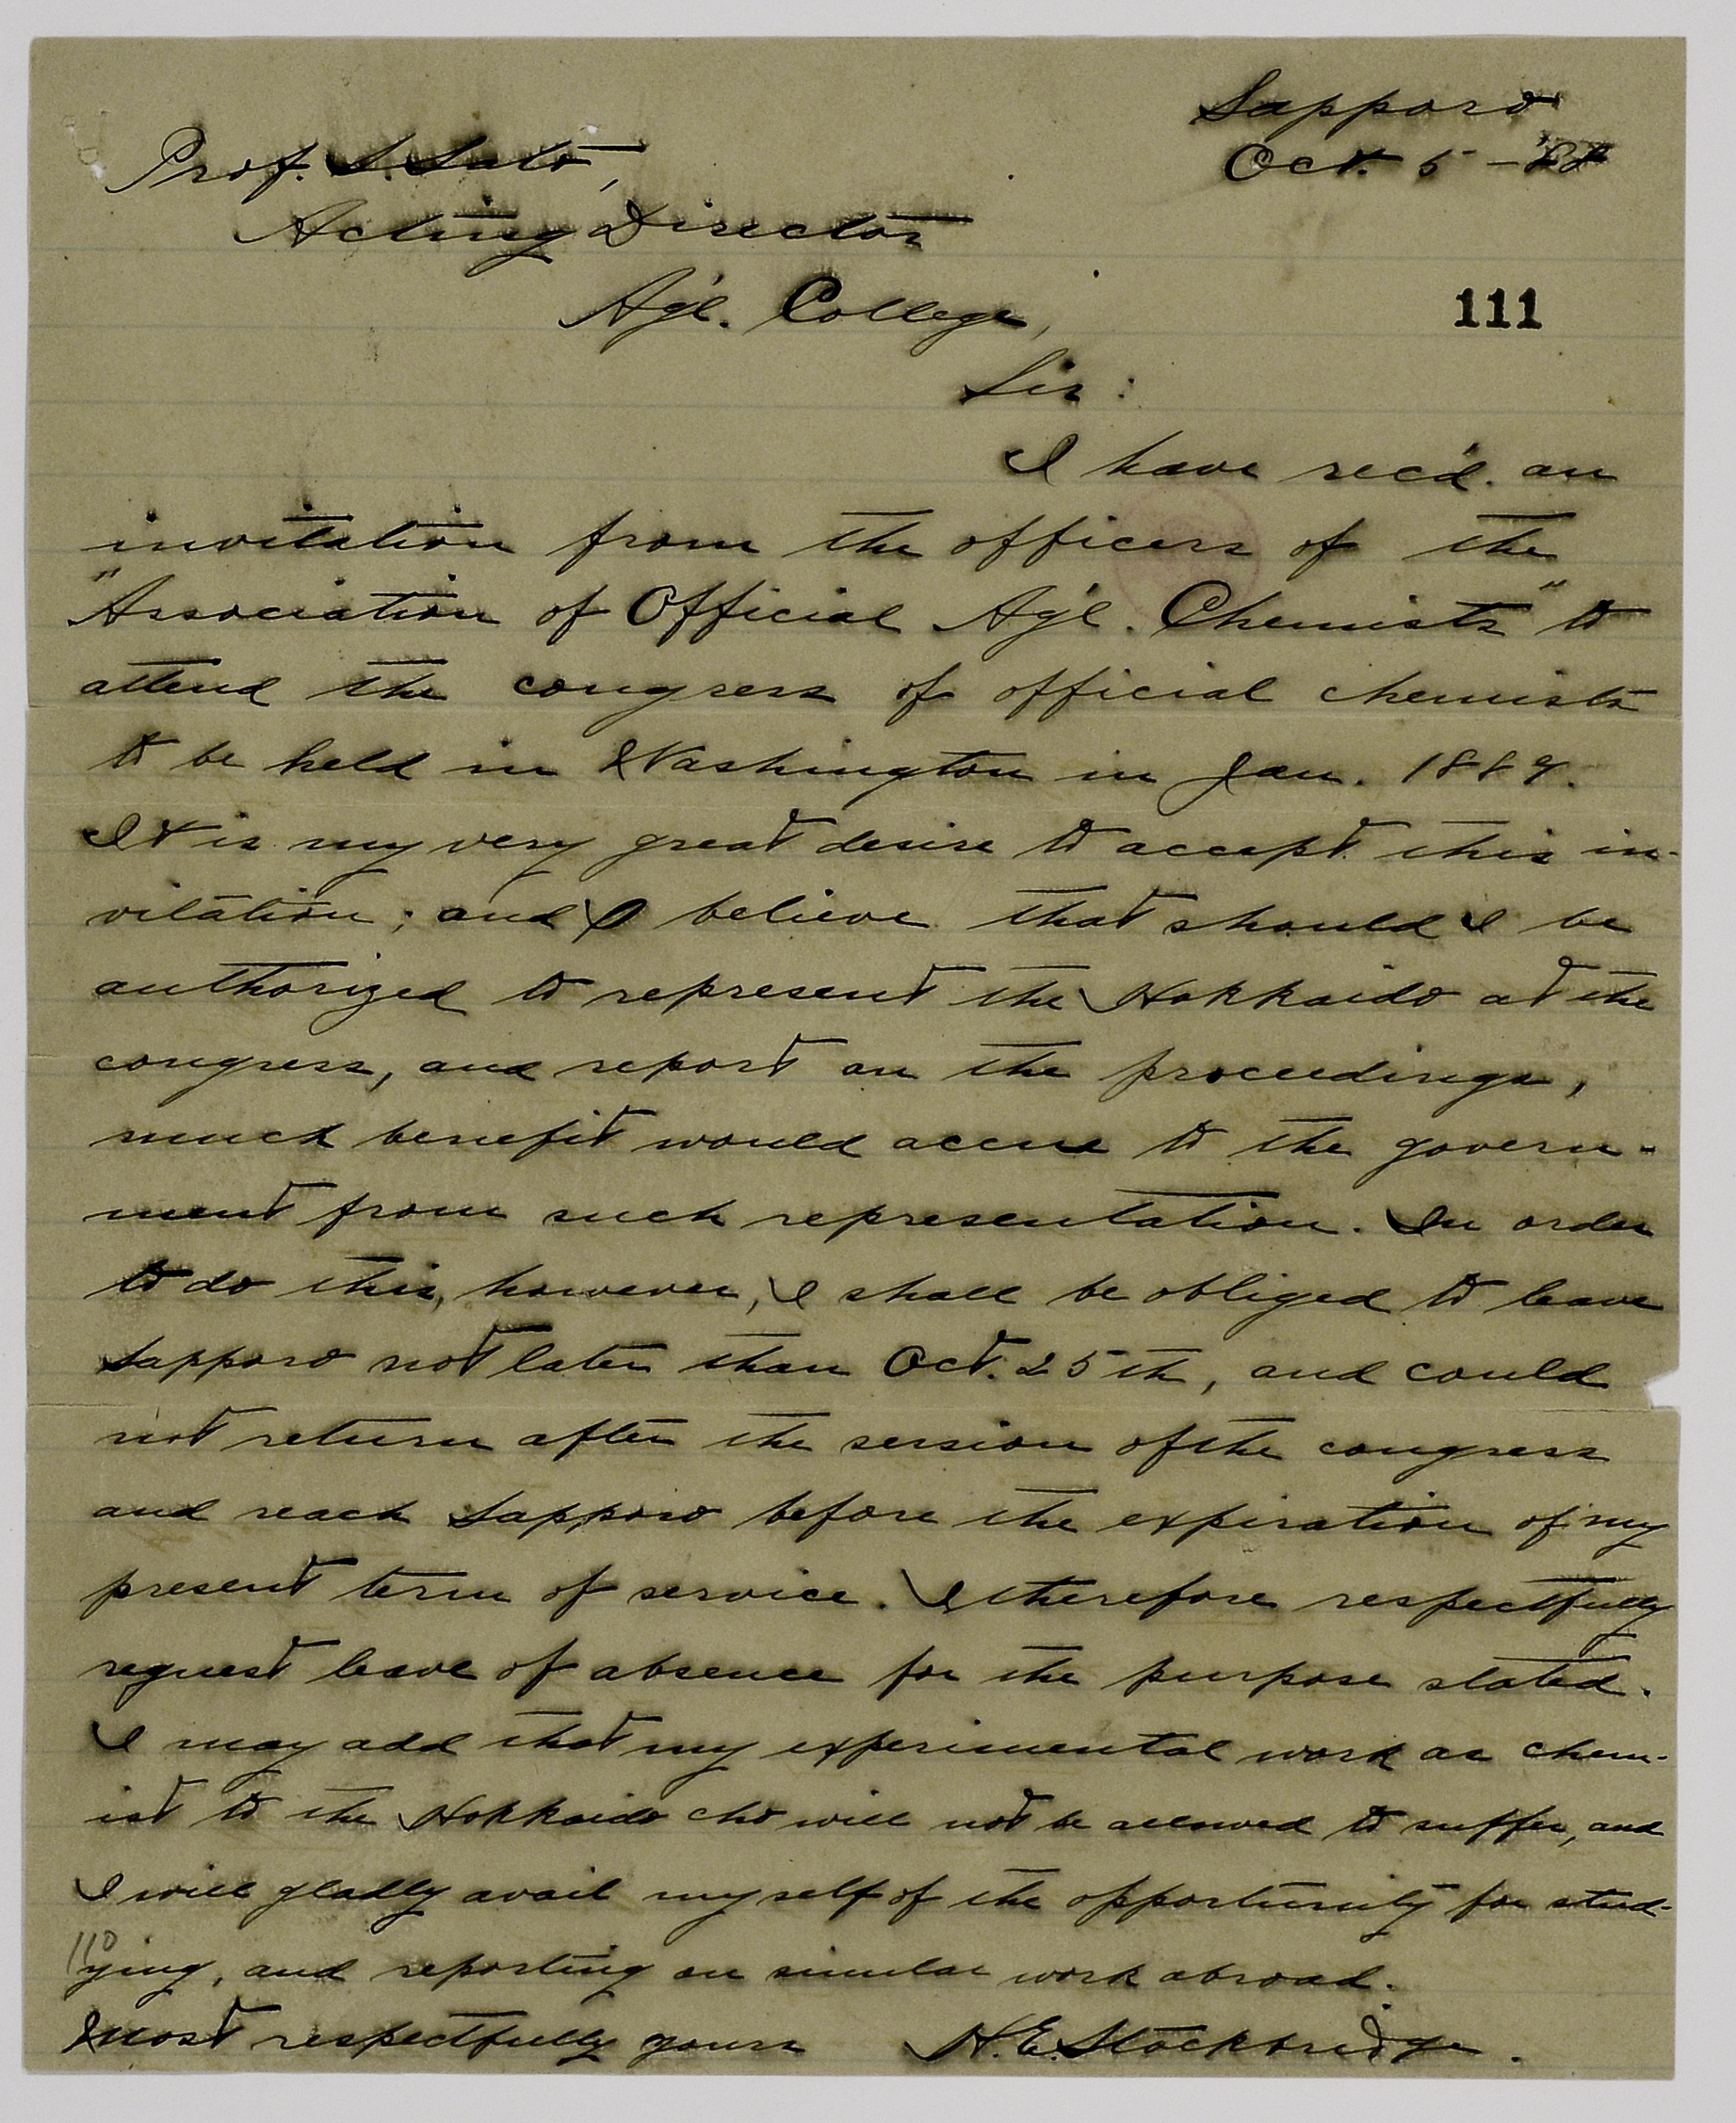 Sapporo
Oct. 5 - '88
Prof. S. Sato,
Acting Director
Ag'l. College,
111
Sir:
I have rec'd. an
invitation from the officers of the
"Association of Official Ag'l. Chemists" to
attend the congress of official chemists
to be held in Washington in Jan. 1889.
It is my very great desire to accept this in-
vitation; and I believe that should I be
authorized to represent the Hokkaido at the
congress, and report on the proceedings,
much benefit would accrue to the govern-
ment from such representation. In order
to do this, however, I shall be obliged to leave
Sapporo not later than Oct. 25th, and could
not return after the session of the congress
and reach Sapporo before the expiration of my
present term of service. I therefore respectfully
request leave of absence for the purpose stated.
I may add that my experimental work as chem-
ist to the Hokkaido cho will not be allowed to suffer, and
I will gladly avail myself of the opportunity for stud-
110
ying, and reporting on similar work abroad.
Most respectfully yours H. E. Stockbridge.